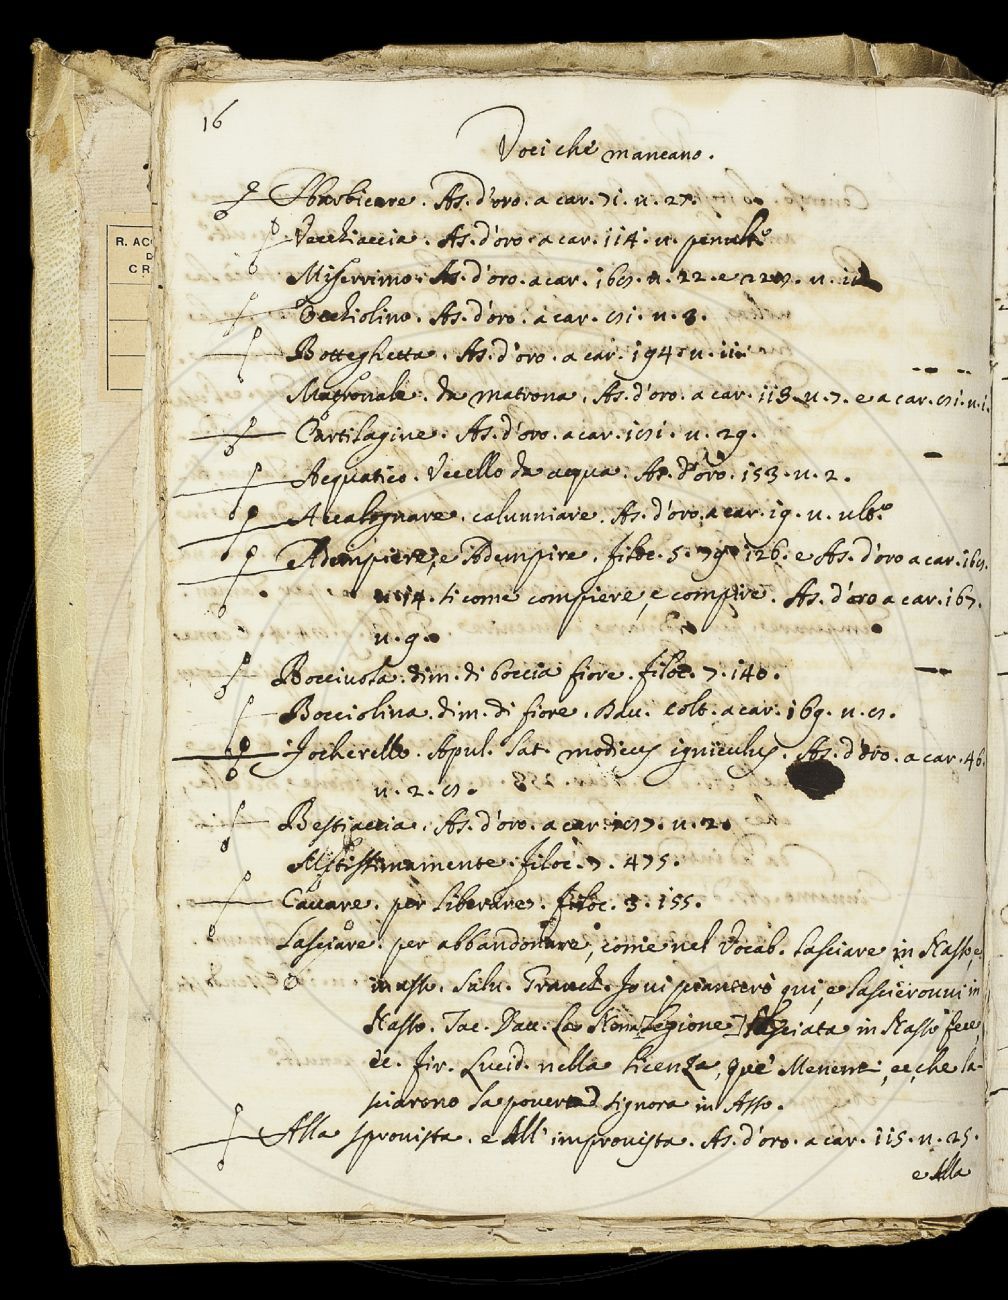 16
Voci che mancano.
R. ACC
D
CR
Sbarbicare. As. d'oro. a car. 71. u. 27.
Vecchiaccia. As. d'oro. a car. 114. u. penult.º
Miserrimo. As. d'oro. a car. u. 22. e u.
Occhiolino. As. d'oro. a car. u. 3.
Botteghetta. As. d'oro. a car. 194. u. 11.
Matronale. da matrona. As. d'oro. a car. 118. u. 7. e a car. u. 1.
Cartilagine. As. d'oro. a car. u. 29.
Acquatico. Vccello da acqua. As. d'oro. 153. u. 2.
Accalognare. calunniare. As. d'oro. a car. 19. u. ult.º
Adempiere, e Adempire. filoc. 5. 79. 126. e As. d'oro a car.
u. 14. sicome compiere, e compire. As. d'oro a car. 167.
u. 9.
Bocciuola. dim. di boccia fiore. filoc. 7. 140.
Bocciolina. dim. di fiore. Dau. colt. a car. 169. u.
focherello. Apul. Lat. modicus igniculus. As. d'oro. a car. 46.
u. 2.
Bestiaccia. As. d'oro. a car. u. 2.
Mestissimamente. filoc. 7. 475.
Cauare. per liberare. filoc. 3. 155.
Lasciare. per abbandonare, come nel Vocab. lasciare in Nasso, e
in asso. Salu. Granch. Io ui pianterò qui, e lascierouui in
Nasso. Tac. Dau. La Nona [legione] lasciata in Nasso fece,
ec. fir. Lucid. nella licenza, que' Menenti, ec, che la-
sciarono la pouera signora in Asso.
Alla sprouista. e All' improuista. As. d'oro. a car. 115. u. 25.
e Alla